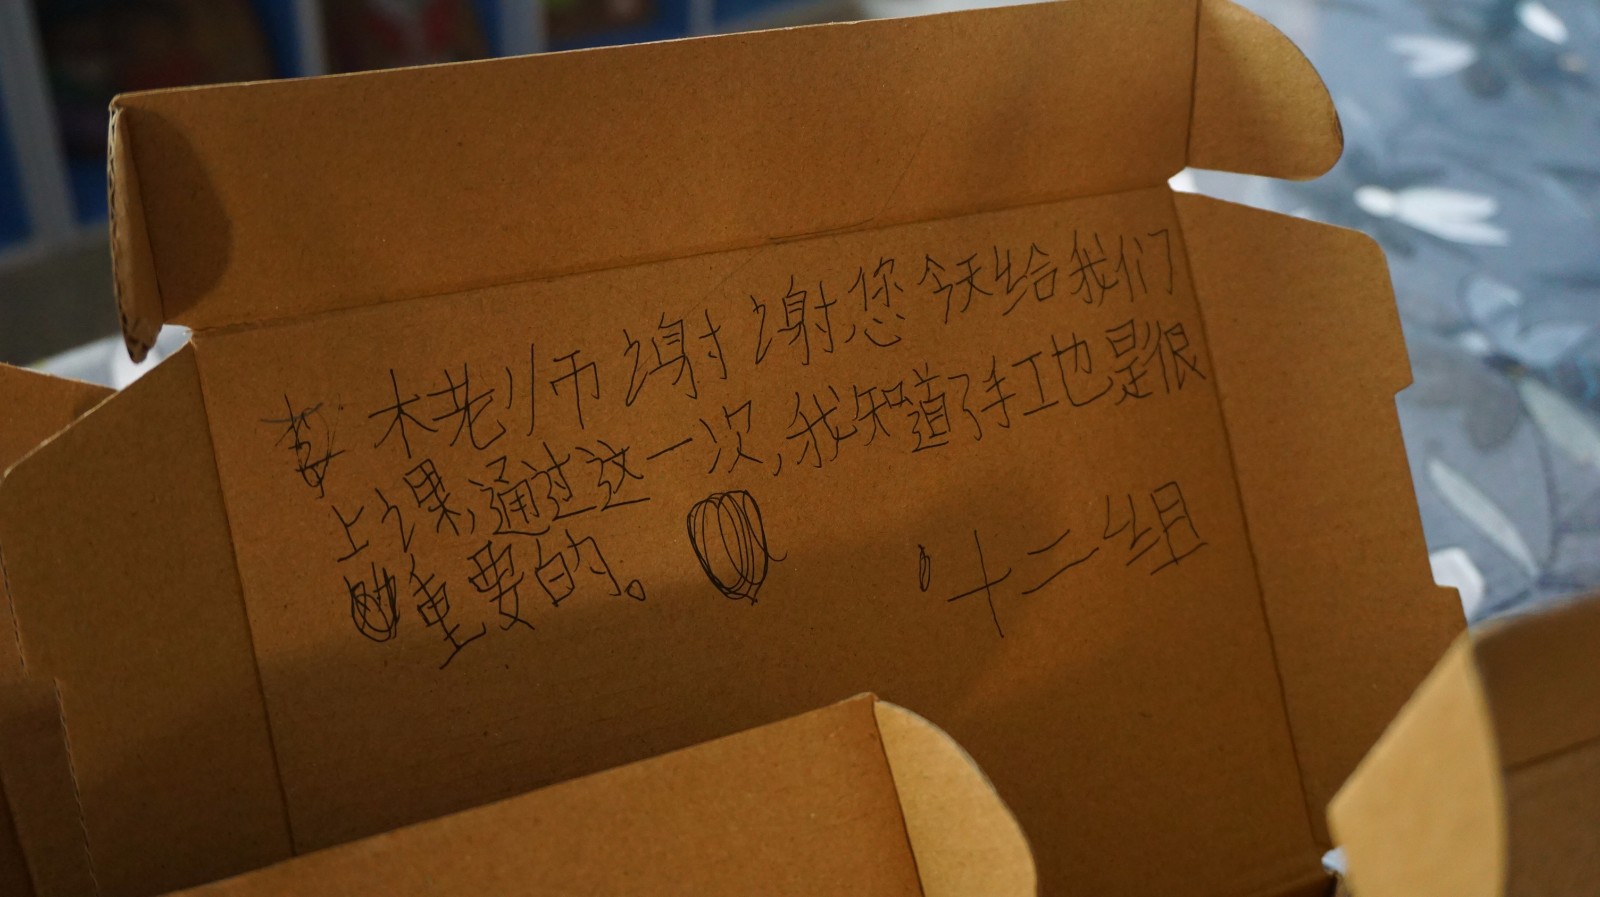 木老师谢谢您今天给我们
上课,通过这一次,我知道了手工也是很
重要的。
十二组